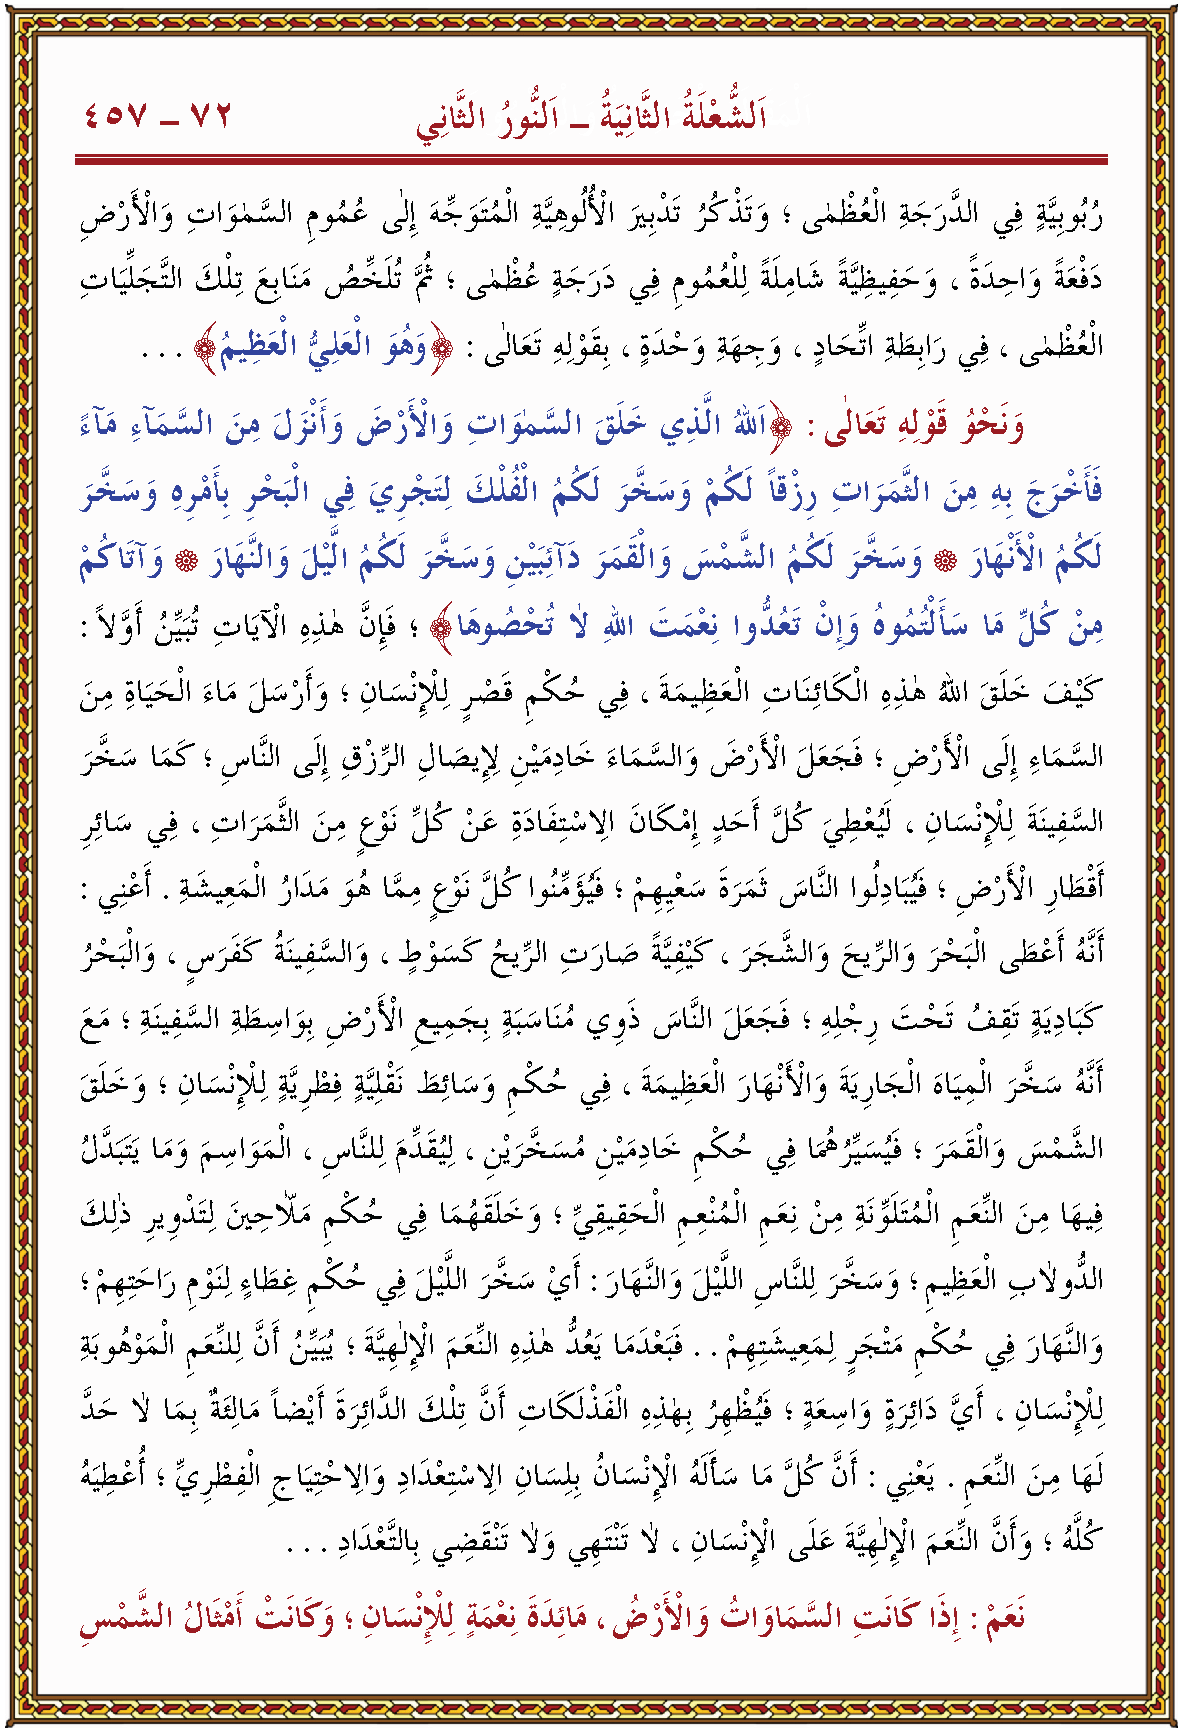 اَلشُّعْلَةُ الثَّانِيَةُ ـ اَلنُّورُ الثَّانِي ٧٢ ـ ٤٥٧
رُبُوبِيَّةٍ فِي الدَّرَجَةِ الْعُظْمٰى ؛ وَتَذْكُرُ تَدْبِيرَ الْأُلُوهِيَّةِ الْمُتَوَجِّهَ إِلٰى عُمُومِ السَّمٰوَاتِ وَالْأَرْضِ
دَفْعَةً وَاحِدَةً ، وَحَفِيظِيَّةً شَامِلَةً لِلْعُمُومِ فِي دَرَجَةٍ عُظْمٰى ؛ ثُمَّ تُلَخِّصُ مَنَابِعَ تِلْكَ التَّجَلِّيَاتِ
الْعُظْمٰى ، فِي رَابِطَةِ اتِّحَادٍ ، وَجِهَةِ وَحْدَةٍ ، بِقَوْلِهِ تَعَالٰى : ﴿وَهُوَ الْعَلِيُّ الْعَظِيمُ﴾ . . .
وَنَحْوُ قَوْلِهِ تَعَالٰى : ﴿اَللهُ الَّذِي خَلَقَ السَّمٰوَاتِ وَالْأَرْضَ وَأَنْزَلَ مِنَ السَّمَآءِ مَآءً
فَأَخْرَجَ بِهِ مِنَ الثَّمَرَاتِ رِزْقاً لَكُمْ وَسَخَّرَ لَكُمُ الْفُلْكَ لِتَجْرِيَ فِي الْبَحْرِ بِأَمْرِهِ وَسَخَّرَ
لَكُمُ الْأَنْهَارَ ۞ وَسَخَّرَ لَكُمُ الشَّمْسَ وَالْقَمَرَ دَآئِبَيْنِ وَسَخَّرَ لَكُمُ الَّيْلَ وَالنَّهَارَ ۞ وَآتَاكُمْ
مِنْ كُلِّ مَا سَأَلْتُمُوهُ وَإِنْ تَعُدُّوا نِعْمَتَ اللهِ لاٰ تُحْصُوهَا﴾ ؛ فَإِنَّ هٰذِهِ الْآيَاتِ تُبَيِّنُ أَوَّلاً :
كَيْفَ خَلَقَ اللهُ هٰذِهِ الْكَائِنَاتِ الْعَظِيمَةَ ، فِي حُكْمِ قَصْرٍ لِلْإِنْسَانِ ؛ وَأَرْسَلَ مَاءَ الْحَيَاةِ مِنَ
السَّمَاءِ إِلَى الْأَرْضِ ؛ فَجَعَلَ الْأَرْضَ وَالسَّمَاءَ خَادِمَيْنِ لِإِيصَالِ الرِّزْقِ إِلَى النَّاسِ ؛ كَمَا سَخَّرَ
السَّفِينَةَ لِلْإِنْسَانِ ، لَيُعْطِيَ كُلَّ أَحَدٍ إِمْكَانَ الِاسْتِفَادَةِ عَنْ كُلِّ نَوْعٍ مِنَ الثَّمَرَاتِ ، فِي سَائِرِ
أَقْطَارِ الْأَرْضِ ؛ فَيُبَادِلُوا النَّاسَ ثَمَرَةَ سَعْيِهِمْ ؛ فَيُؤَمِّنُوا كُلَّ نَوْعٍ مِمَّا هُوَ مَدَارُ الْمَعِيشَةِ . أَعْنِي :
أَنَّهُ أَعْطَى الْبَحْرَ وَالرِّيحَ وَالشَّجَرَ ، كَيْفِيَّةً صَارَتِ الرِّيحُ كَسَوْطٍ ، وَالسَّفِينَةُ كَفَرَسٍ ، وَالْبَحْرُ
كَبَادِيَةٍ تَقِفُ تَحْتَ رِجْلِهِ ؛ فَجَعَلَ النَّاسَ ذَوِي مُنَاسَبَةٍ بِجَمِيعِ الْأَرْضِ بِوَاسِطَةِ السَّفِينَةِ ؛ مَعَ
أَنَّهُ سَخَّرَ الْمِيَاهَ الْجَارِيَةَ وَالْأَنْهَارَ الْعَظِيمَةَ ، فِي حُكْمِ وَسَائِطَ نَقْلِيَّةٍ فِطْرِيَّةٍ لِلْإِنْسَانِ ؛ وَخَلَقَ
الشَّمْسَ وَالْقَمَرَ ؛ فَيُسَيِّرُهُمَا فِي حُكْمِ خَادِمَيْنِ مُسَخَّرَيْنِ ، لِيُقَدِّمَ لِلنَّاسِ ، الْمَوَاسِمَ وَمَا يَتَبَدَّلُ
فِيهَا مِنَ النِّعَمِ الْمُتَلَوِّنَةِ مِنْ نِعَمِ الْمُنْعِمِ الْحَقِيقِيِّ ؛ وَخَلَقَهُمَا فِي حُكْمِ مَلّاَحِينَ لِتَدْوِيرِ ذٰلِكَ
الدُّولاٰبِ الْعَظِيمِ ؛ وَسَخَّرَ لِلنَّاسِ اللَّيْلَ وَالنَّهَارَ : أَيْ سَخَّرَ اللَّيْلَ فِي حُكْمِ غِطَاءٍ لِنَوْمِ رَاحَتِهِمْ ؛
وَالنَّهَارَ فِي حُكْمِ مَتْجَرٍ لِمَعِيشَتِهِمْ . . فَبَعْدَمَا يَعُدُّ هٰذِهِ النِّعَمَ الْإِلٰهِيَّةَ ؛ يُبَيِّنُ أَنَّ لِلنِّعَمِ الْمَوْهُوبَةِ
لِلْإِنْسَانِ ، أَيَّ دَائِرَةٍ وَاسِعَةٍ ؛ فَيُظْهِرُ بِهٰذِهِ الْفَذْلَكَاتِ أَنَّ تِلْكَ الدَّائِرَةَ أَيْضاً مَالِئَةٌ بِمَا لاٰ حَدَّ
لَهَا مِنَ النِّعَمِ . يَعْنِي : أَنَّ كُلَّ مَا سَأَلَهُ الْإِنْسَانُ بِلِسَانِ الِاسْتِعْدَادِ وَالِاحْتِيَاجِ الْفِطْرِيِّ ؛ أُعْطِيَهُ
كُلَّهُ ؛ وَأَنَّ النِّعَمَ الْإِلٰهِيَّةَ عَلَى الْإِنْسَانِ ، لاٰ تَنْتَهِي وَلاٰ تَنْقَضِي بِالتَّعْدَادِ . . .
نَعَمْ : إِذَا كَانَتِ السَّمَاوَاتُ وَالْأَرْضُ ، مَائِدَةَ نِعْمَةٍ لِلْإِنْسَانِ ؛ وَكَانَتْ أَمْثَالُ الشَّمْسِ